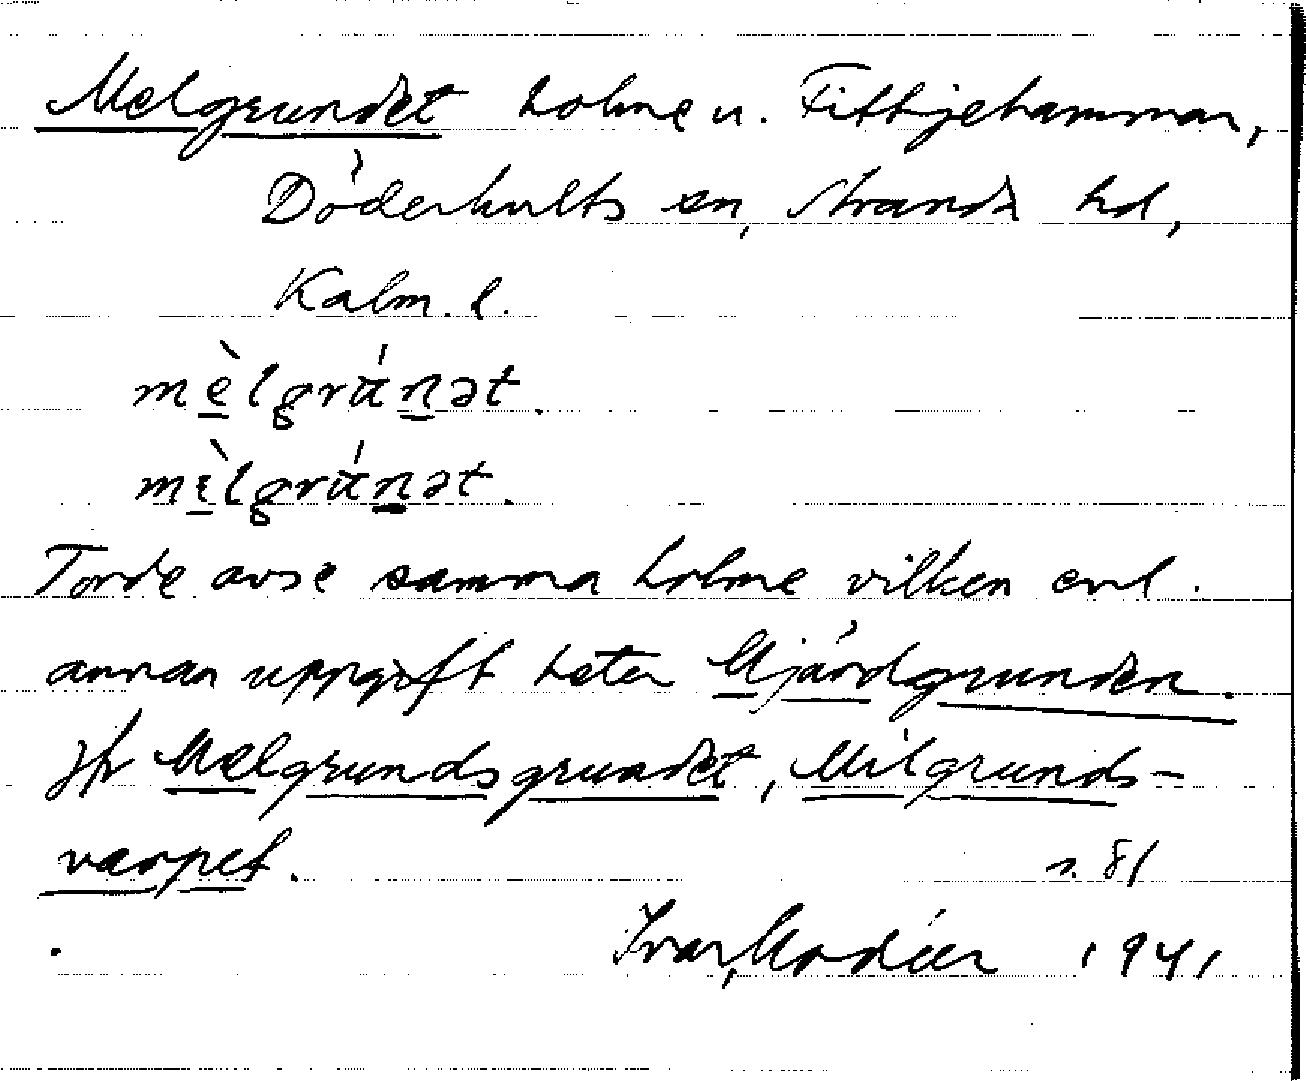 Melgrundet holme u. Fittjehammar,
Döderhults sn, Strands hd,
Kalm. l.
mèlgránət.
mèlgránət.
Torde avse samma holme vilken enl.
annan uppgift heter Mjärdgrunden.
Jfr Melgrundsgrundet, Milgrunds-
varpet.
s. 81
Ivar Modéer 1941